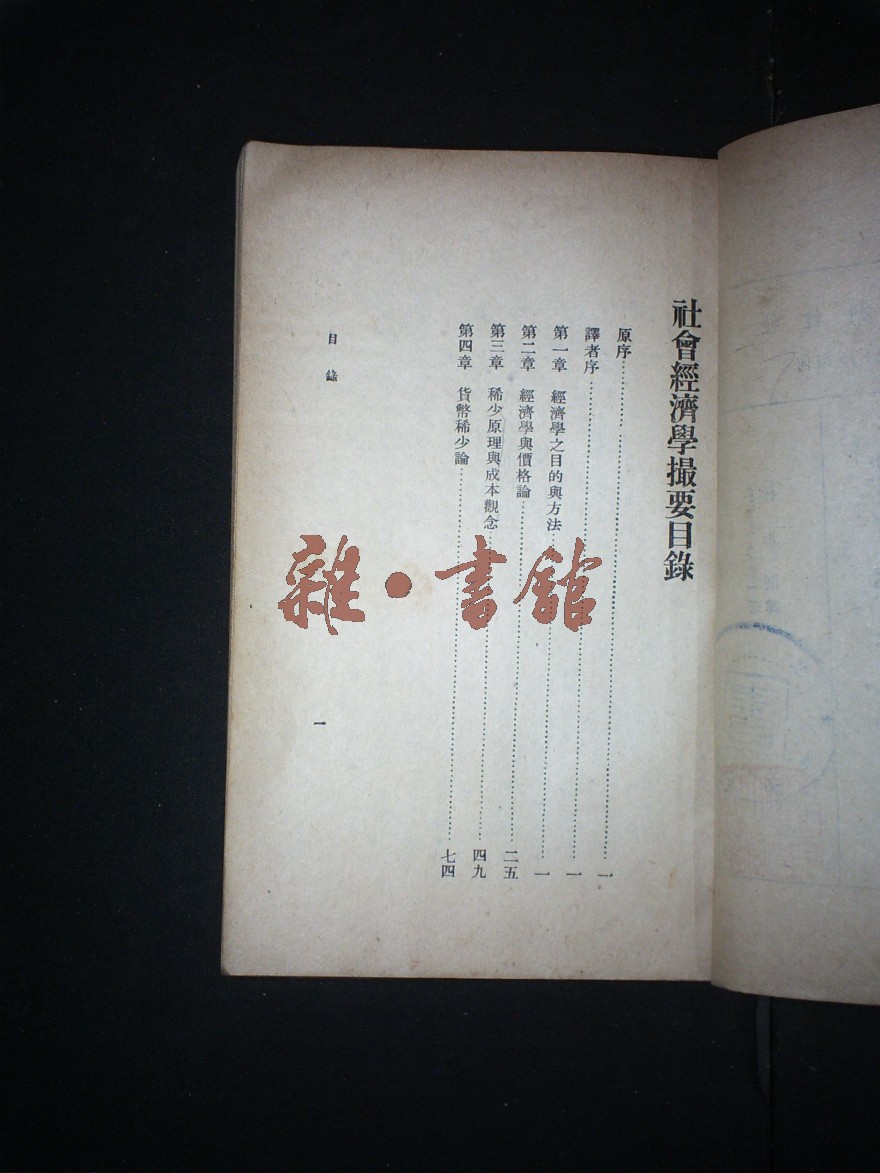 社會經濟學撮要目錄
原序……………………一
譯者序……………………一
第一章　經濟學之目的與方法……………………一
第二章　經濟學與價格論……………………二五
第三章　稀少原理與成本觀念……………………四九
第四章　貨幣稀少論……………………七四
目錄　一
雜·書館